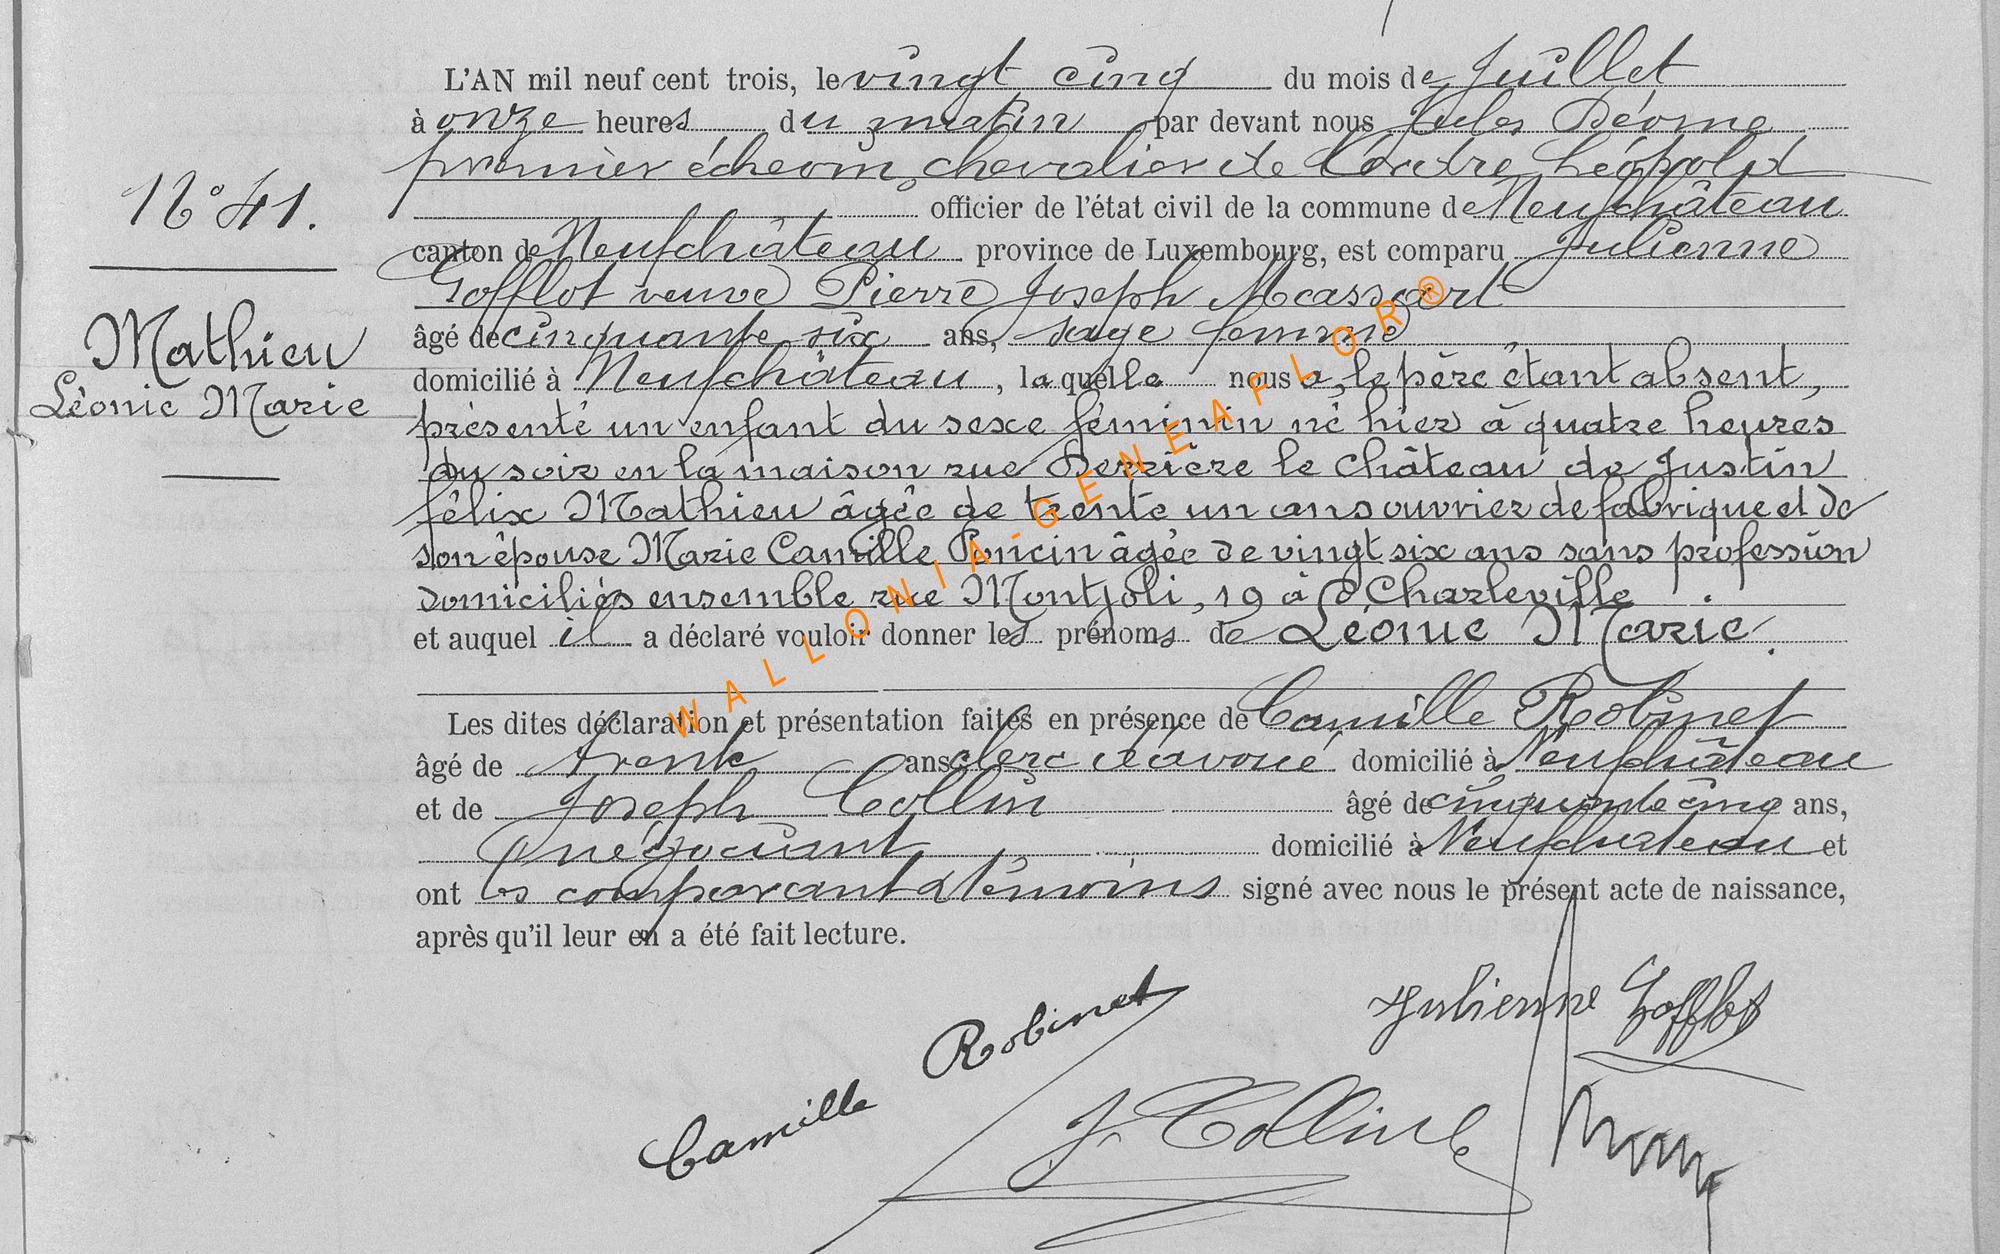 L'AN mil neuf cent trois, le vingt cinq du mois de Juillet
à onze heures du matin par devant nous Jules Déome
premier échevin, chevalier de l'ordre Léopold
N° 41.
officier de l'état civil de la commune de Neufchâteau
canton de Neufchâteau province de Luxembourg, est comparu Julienne
Gofflot veuve Pierre Joseph Massart
Mathieu
Léonie Marie
âgé de cinquante six ans, sage femme
domicilié à Neufchâteau, laquelle nous a, le père étant absent,
présenté un enfant du sexe féminin né hier à quatre heures
du soir en la maison rue Derrière le château de Justin
félix Mathieu âgée de trente un ans ouvrier de fabrique et de
son épouse Marie Camille Poncin âgée de vingt six ans sans profession
domiciliés ensemble rue Montjoli, 19 à Charleville.
et auquel il a déclaré vouloir donner les prénoms de Léonie Marie.
Les dites déclaration et présentation faites en présence de Camille Robinet
âgé de trente ans clerc d'avoué domicilié à Neufchâteau
et de Joseph Collin âgé de cinquante cinq ans,
négociant domicilié à Neufchâteau et
ont les comparant et témoins signé avec nous le présent acte de naissance,
après qu'il leur en a été fait lecture.
Camille Robinet
Julienne Gofflot
J. Collin
WALLONIA-GENEAFLOR®